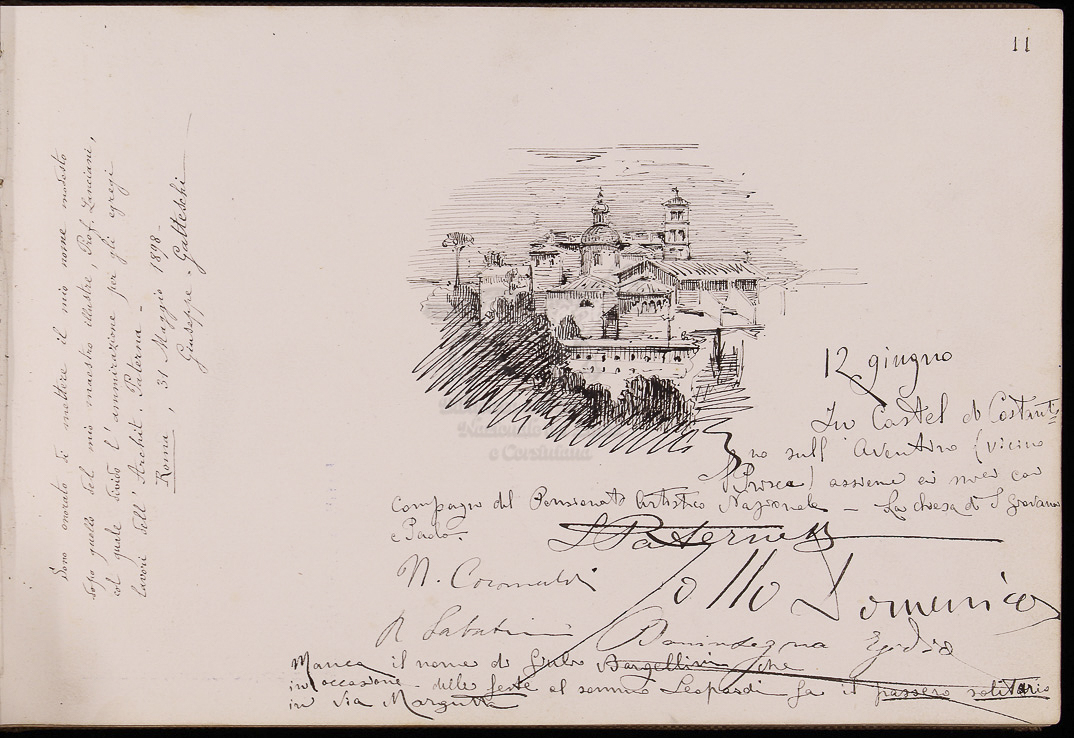 11
Sono onorato di mettere il mio nome modesto
dopo quello del mio maestro illustre, Prof. Lanciani,
col quale divido l'ammirazione per gli egregi
lavori dell'Archit.
Roma, 31 Maggio 1898 -
Giuseppe Gatteschi
12 giugno
In Castel di Costanti=
no sull'Aventino (vicino
S. Prisca) assieme ai miei cari
compagni del Pensionato Artistico Nazionale — La chiesa di S Giovanni
e Paolo.
N. Coromaldi
Domenico
R Sabatini
Manca il nome di Giulio Bargellini che
in occasione delle feste al sommo Leopardi fa il passero solitario
in Via Margutta